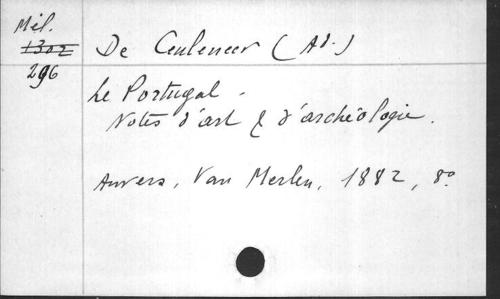 Mél.
1302
296
De Ceuleneer (Ad.)
Le Portugal.
Notes d'art & d'archéologie.
Anvers, Van Merlen, 1882, 8°